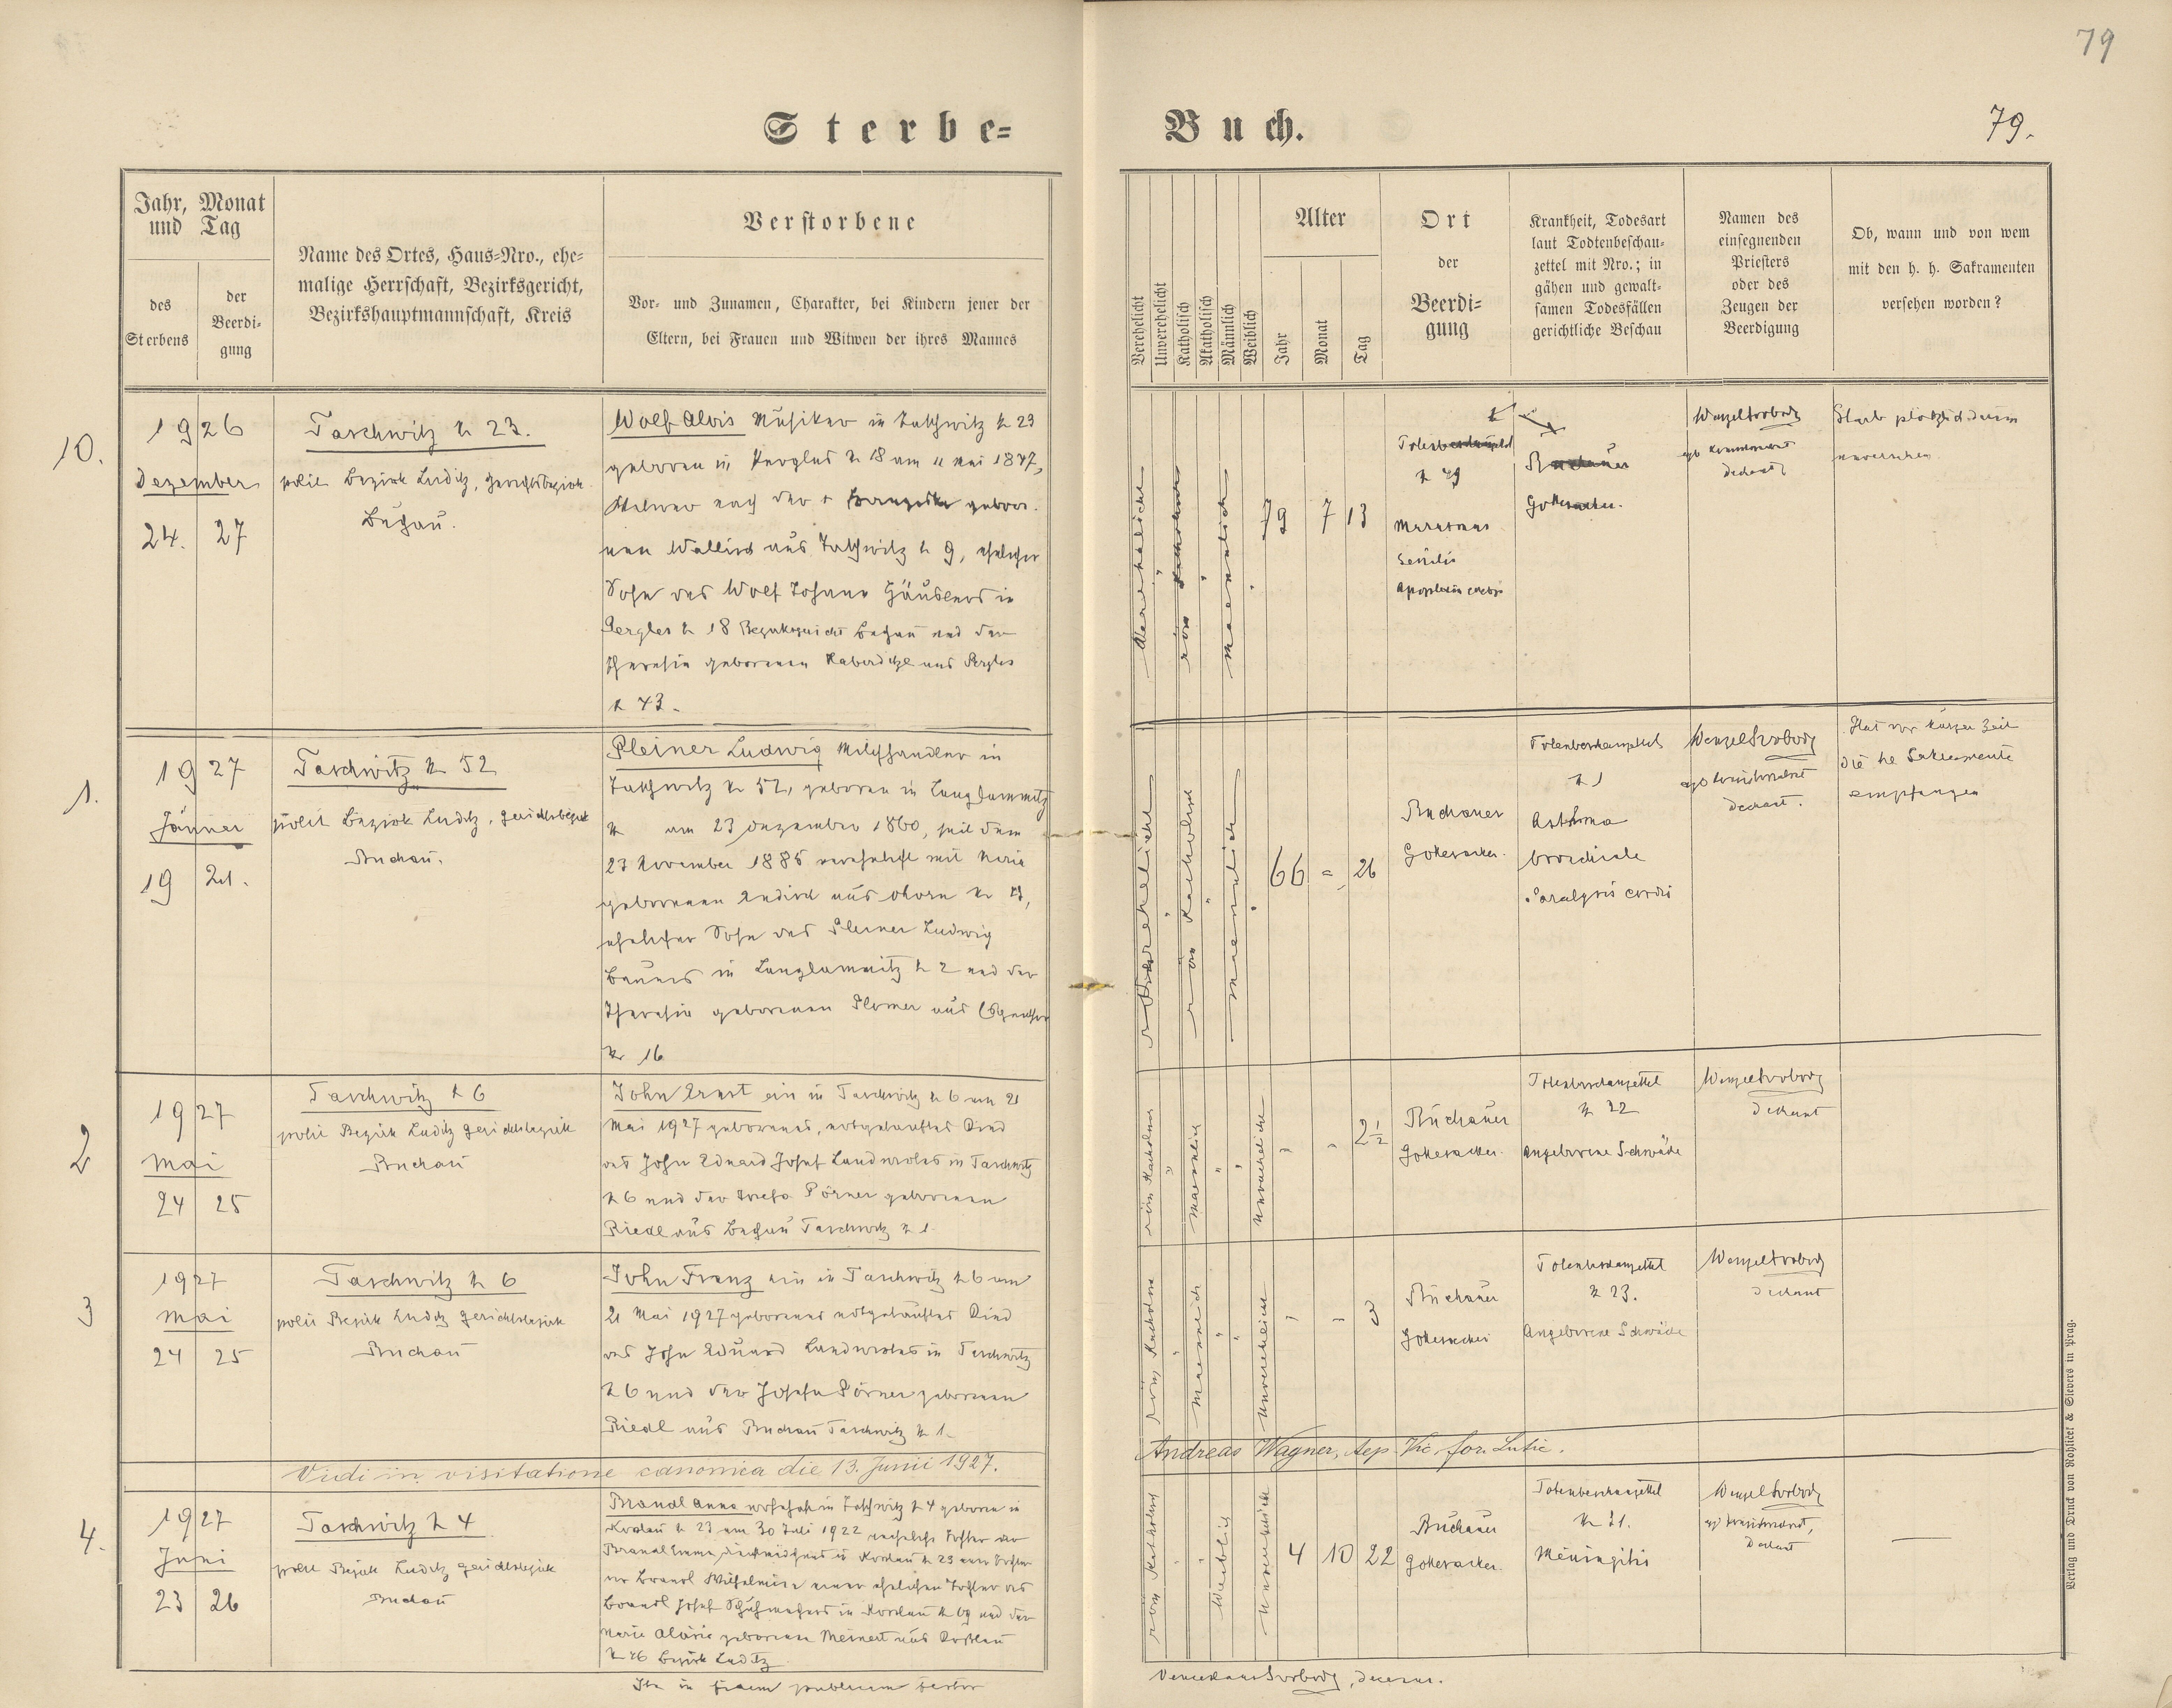 79
Sterbe=
Buch.
79.
Jahr, Monat
und Tag
des
Sterbens
der
Beerdi=
gung
Name des Ortes, Haus=Nro., ehe=
malige Herrschaft, Bezirksgericht,
Bezirkshauptmannschaft, Kreis
Verstorbene
Vor= und Zunamen, Charakter, bei Kindern jener der
Eltern, bei Frauen und Witwen der ihres Mannes
Verehelicht
Unverehelicht
Katholisch
Akatholisch
Männlich
Weiblich
Alter
Jahr
Monat
Tag
Ort
der
Beerdi=
gung
Krankheit, Todesart
laut Todtenbeschau=
zettel mit Nro.; in
gähen und gewalt=
samen Todesfällen
gerichtliche Beschau
Namen des
einsegnenden
Priesters
oder des
Zeugen der
Beerdigung
Ob, wann und von wem
mit den h. h. Sakramenten
versehen worden?
10.
1926
Dezember
24. 27
Taschwitz N 23.
polit Bezirk Luditz, Gerichtsbezirk
Buchau.
Wolf Alois Musiker in Taschwitz N 23
geboren in Pergles N 18 am 11 Mai 1847,
Witwer nach der + Franziska gebor
nen aus Taschwitz N 9, ehelicher
Sohn des Wolf Johann Häuslers in
Pergles N 18 Bezirksgericht Buchau und der
Theresia geborenen aus Pergles
N 43.
röm Katholisch
maennlich
79 7 13
N 49
Marasmus
senilis
Apoplexia
Buchauer
Gottesacker.
Wenzel Svoboda
Dechant
Starb plötzlich
1.
1927
Jänner
19 21.
Taschwitz N 52
polit Bezirk Luditz, Gerichtsbezirk
Buchau.
Pleiner Ludwig Milchhändler in
Taschwitz N 52, geboren in Langlammitz
N am 23 Dezember 1860, seit dem
23 November 1886 verehelicht mit Maria
geborenen aus N
ehelicher Sohn des Pleiner Ludwig
Bauers in Langlammitz N 2 und der
Theresia geborenen aus
N 16
Verehelicht
röm Katholisch
maennlich
66 = 26
Buchauer
Gottesacker.
Totenbeschauzettel
N 1
Asthma
bronchiale
Paralysis cordis
Wenzel Svoboda
Dechant.
Hat vor kurzer Zeit
die hl Sakramente
empfangen
2
1927
Mai
24 25
Taschwitz N 6
polit Bezirk Luditz Gerichtsbezirk
Buchau
John Ernst ein in Taschwitz N 6 am 21
Mai 1927 geborenes, notgetauftes Kind
des John Eduard Josef Landwirtes in Taschwitz
N 6 und der Josefa Pörner geborenen
Riedl aus Buchau Taschwitz N 1.
röm Katholisch
Maennlich
Unverehelicht
2 1/2
Buchauer
Gottesacker.
Totenbeschauzettel
N 22
Angeborene Schwäche
Wenzel Svoboda
Dechant
3
1927
Mai
24 25
Taschwitz N 6
polit Bezirk Luditz Gerichtsbezirk
Buchau
John Franz ein in Taschwitz N 6 am
21 Mai 1927 geborenes notgetauftes Kind
des John Eduard Landwirtes in Taschwitz
N 6 und der Josefa Pörner geborenen
Riedl aus Buchau Taschwitz N 1.
röm Katholisch
Maennlich
Unverehelicht
3
Buchauer
Gottesacker
Totenbeschauzettel
N 23.
Angeborene Schwäche
Wenzel Svoboda
Dechant
Vidi in visitatione canonica die 13. Junii 1927.
Andreas Wagner, Vic. for.
4.
1927
Juni
23 26
Taschwitz N 4
polit Bezirk Luditz Gerichtsbezirk
Buchau
Brandl Anna wohnhaft in Taschwitz N 4 geboren in
Koslau N 23 am 30 Juli 1922 uneheliche Tochter der
Brandl Emma, in Koslau N 23 einer Tochter
der Brandl Wilhelmine einer ehelichen Tochter des
Brandl Josef Schuhmachers in Koslau N 69 und der
Maria geborenen Meinert aus Koslau
N 46 Bezirk Luditz
röm Katholisch
Weiblich
Unverehelicht
4 10 22
Buchauer
Gottesacker.
Totenbeschauzettel
N 31.
Meningitis
Wenzel Svoboda
Dechant
Ita in fidem publicam testor
Venceslaus Svoboda, decanus.
Verlag und Druck von Rohlicek & Sievers in Prag.